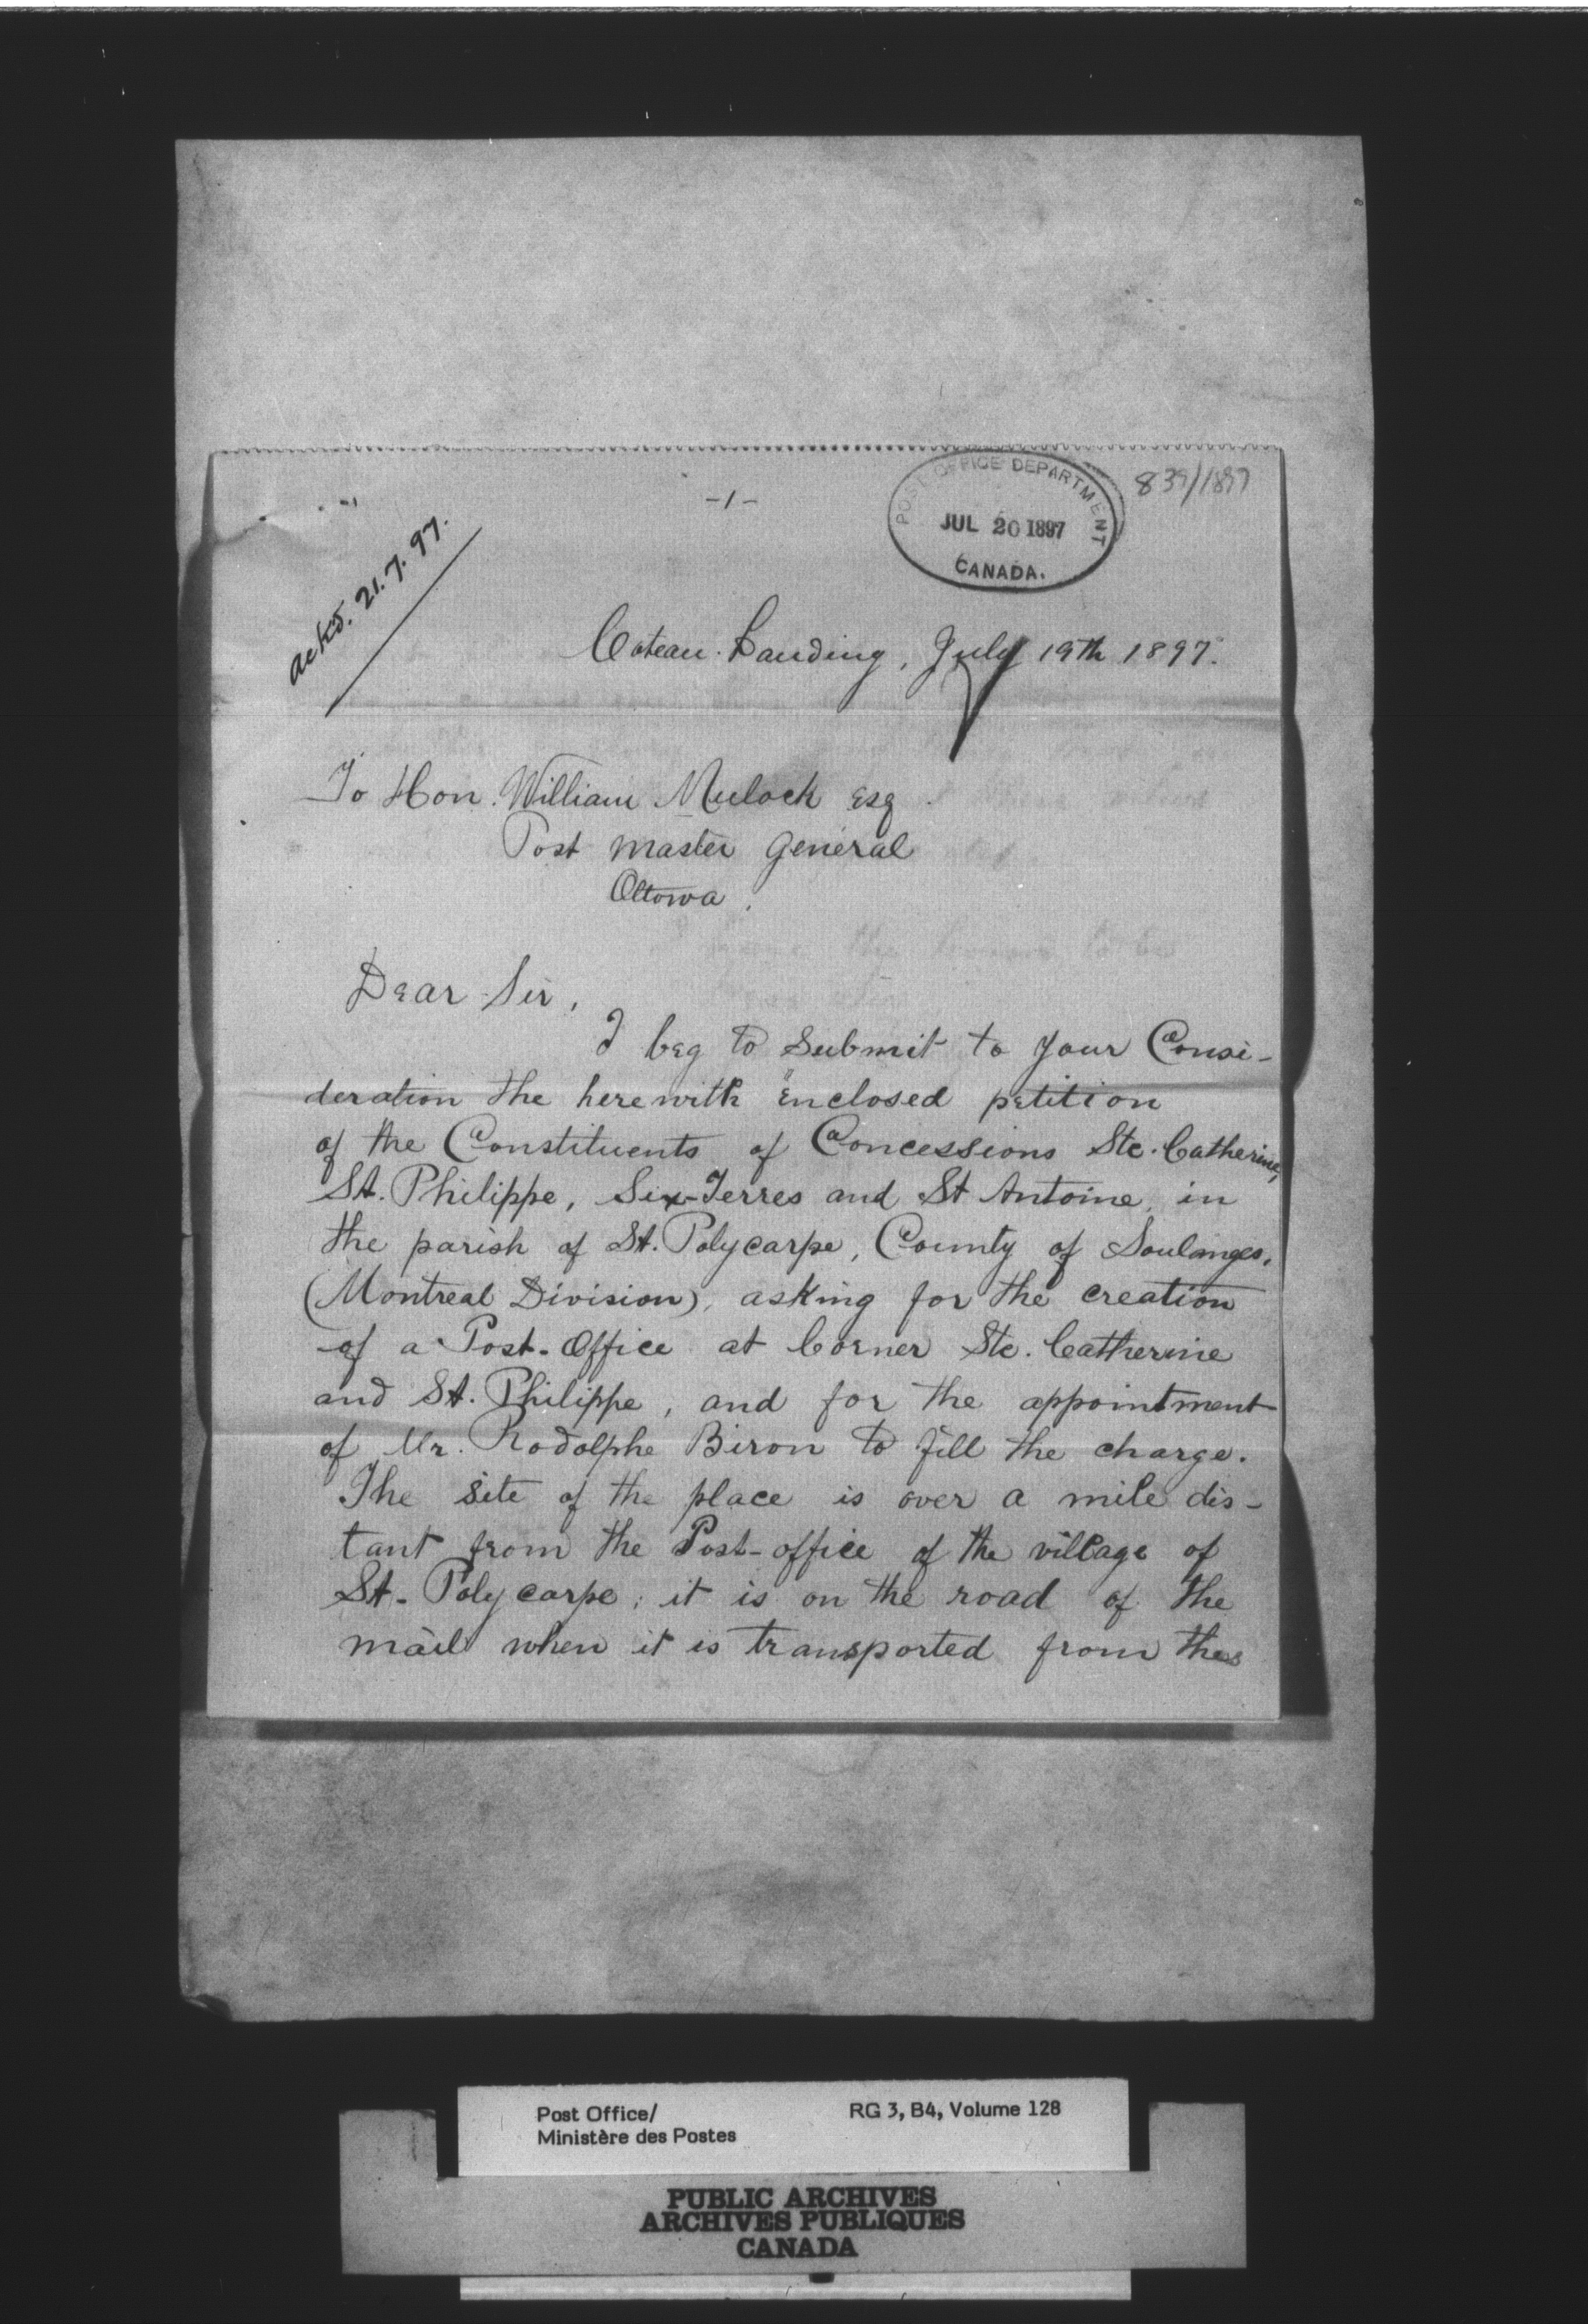 -1-
POST OFFICE DEPARTMENT
JUL 20 1897
CANADA.
839/1897
ackd. 21.7.97.
Coteau-Landing, July 19th 1897.
To Hon. William Mulock Esq
Post master General
Ottowa.
Dear Sir,
I beg to submit to your Consi-
deration the herewith enclosed petition
of the Constituents of Concessions Ste. Catherine,
St. Philippe, Six-Terres and St Antoine, in
the parish of St. Polycarpe, County of Soulanges,
(Montreal Division), asking for the creation
of a Post-Office at Corner Ste. Catherine
and St. Philippe, and for the appointment
of Mr. Rodolphe Biron to fill the charge.
The site of the place is over a mile dis-
tant from the Post-office of the village of
St-Polycarpe; it is on the road of the
mail when it is transported from the
Post Office/
Ministère des Postes
RG 3, B4, Volume 128
PUBLIC ARCHIVES
ARCHIVES PUBLIQUES
CANADA